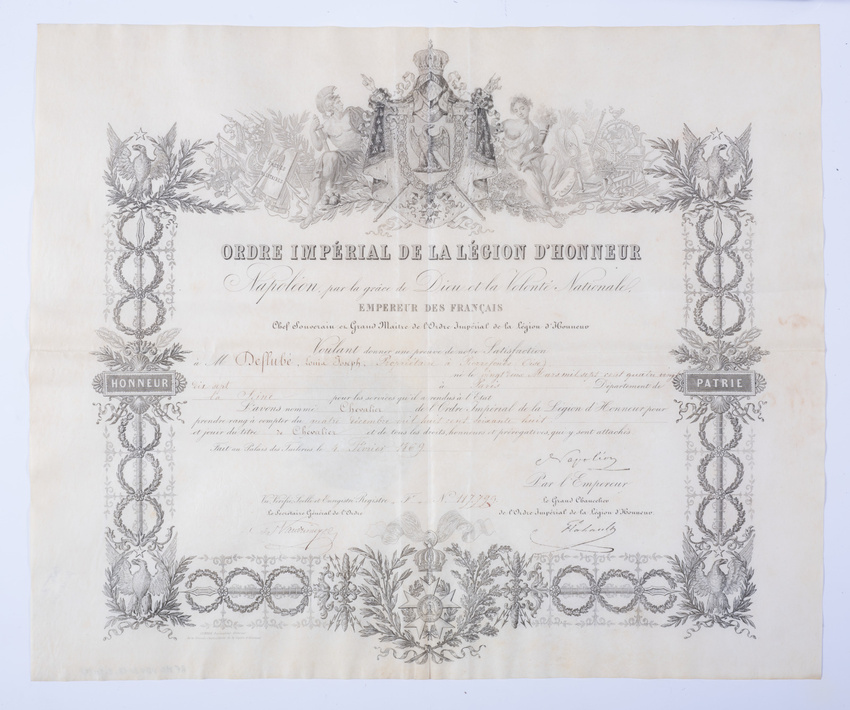 ORDRE IMPÉRIAL DE LA LÉGION D'HONNEUR
Napoléon, par la grâce de Dieu et la Volonté Nationale,
EMPEREUR DES FRANÇAIS
Chef Souverain et Grand Maître de l'Ordre Impérial de la Légion d'Honneur
Voulant donner une preuve de notre Satisfaction
à M Louis Joseph, Propriétaire à
né le vingt deux Mars mil sept cent quatre vingt
dix sept à Paris Département de
la Seine pour les services qu'il a rendus à l'État
L'avons nommé Chevalier de l'Ordre Impérial de la Légion d'Honneur pour
prendre rang à compter du décembre mil huit cent soixante huit
et jouir du titre de Chevalier et de tous les droits, honneurs et prérogatives, qui y sont attachés
Fait au Palais des Tuileries le Février
HONNEUR
PATRIE
Napoléon
Par l'Empereur
Vu, Vérifié, Scellé et Enregistré, Registre N°
le Grand Chancelier
le Secrétaire Général de l'Ordre
de l'Ordre Impérial de la Légion d'Honneur